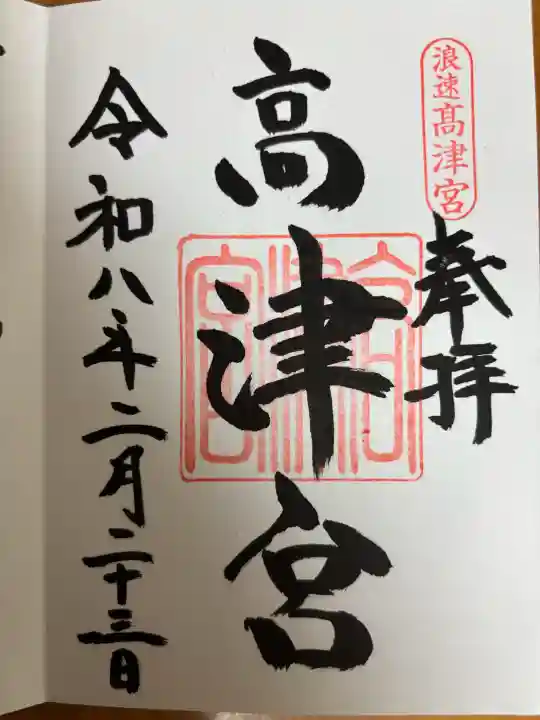 浪速高津宮
奉拝
高津宮
高津宮
令和八年二月二十三日